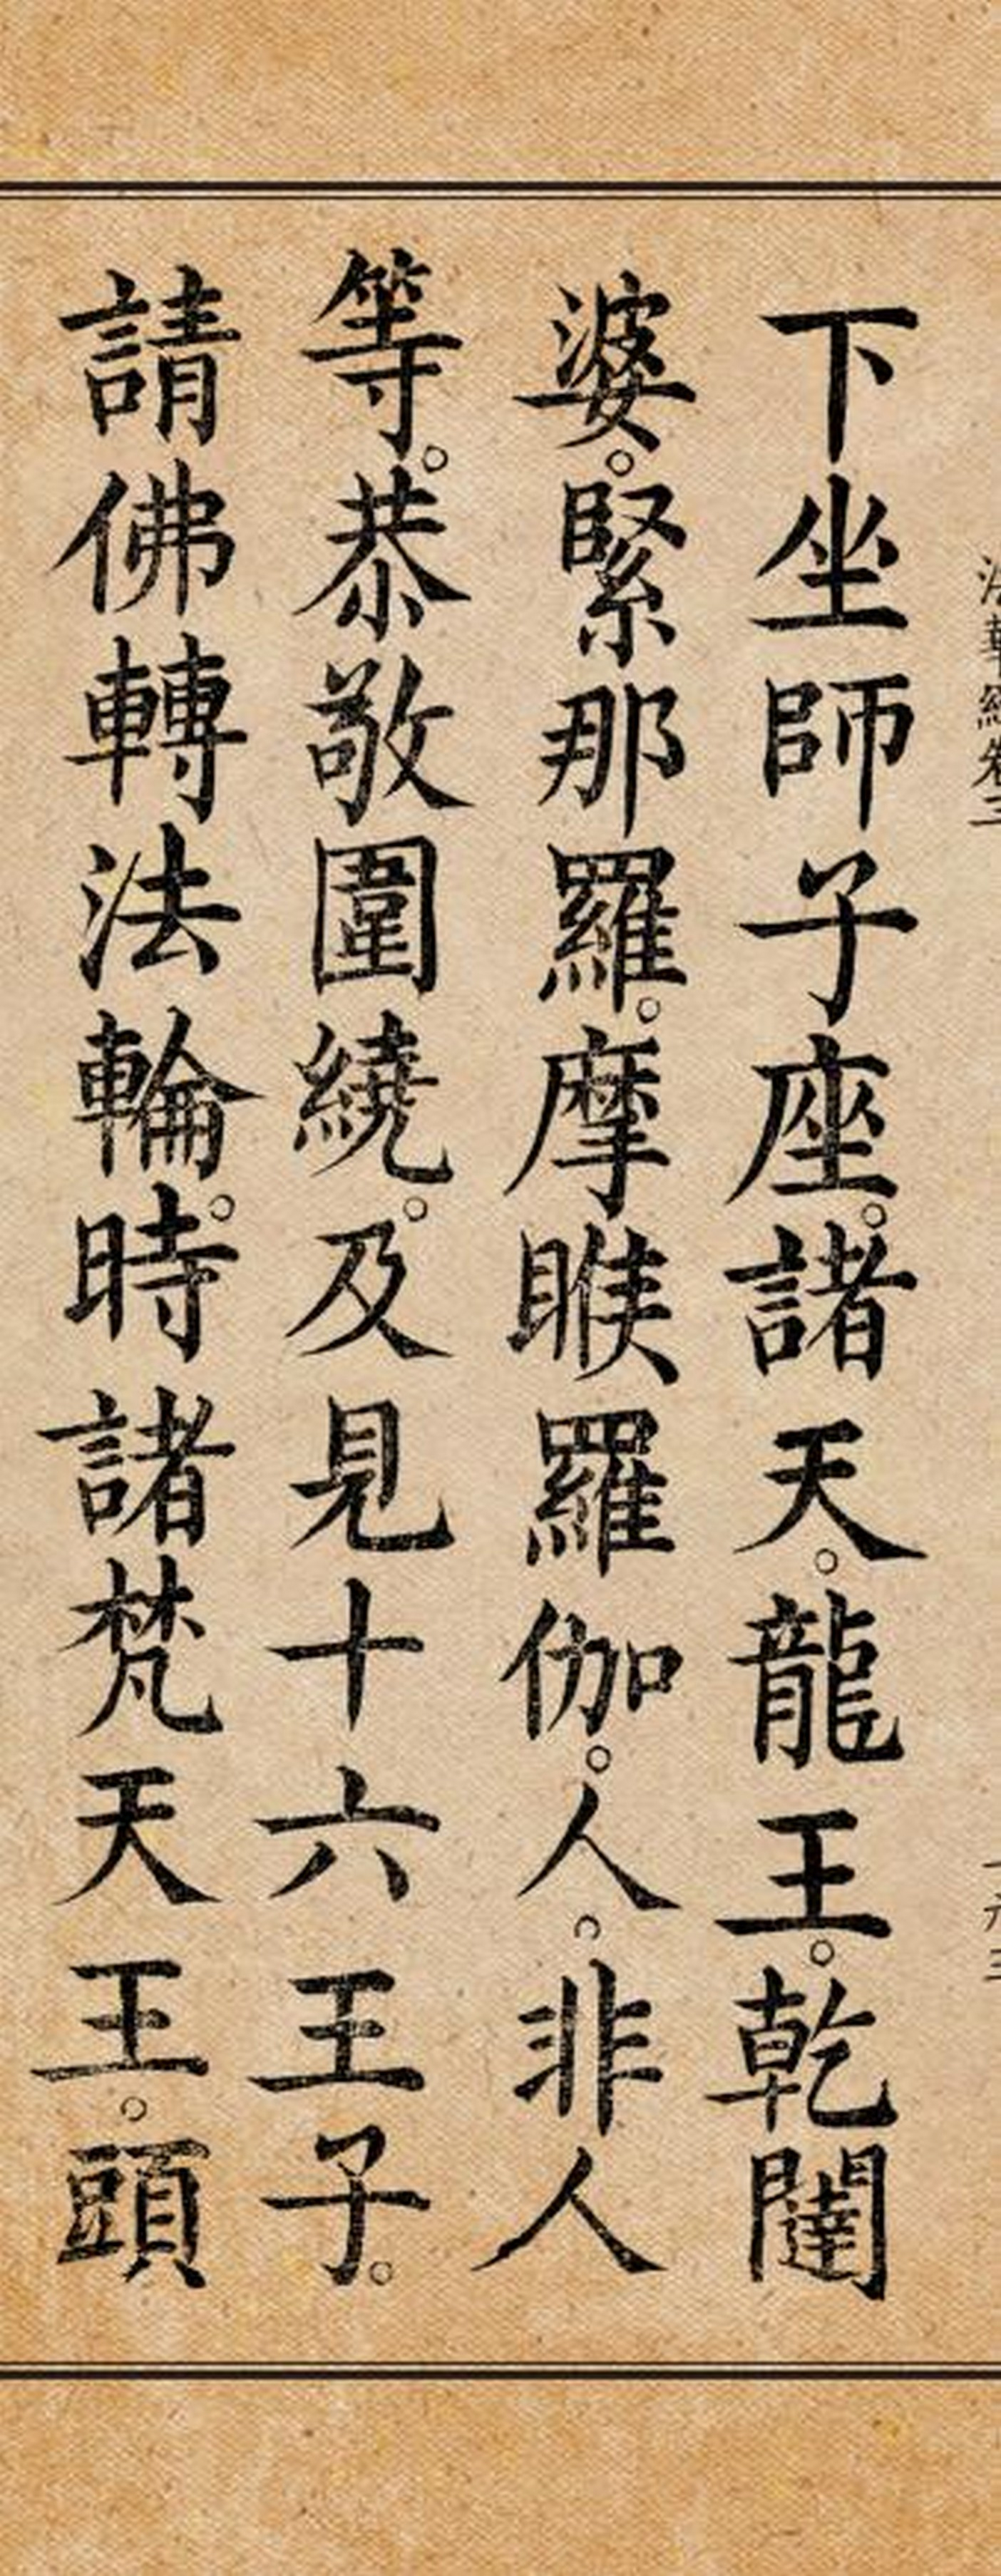 法華經卷三
下坐師子座。諸天。龍王。乾闥
婆。緊那羅。摩睺羅伽。人。非人
等。恭敬圍繞。及見十六王子。
請佛轉法輪。時諸梵天王。頭